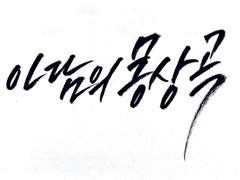 아람의 몽상곡